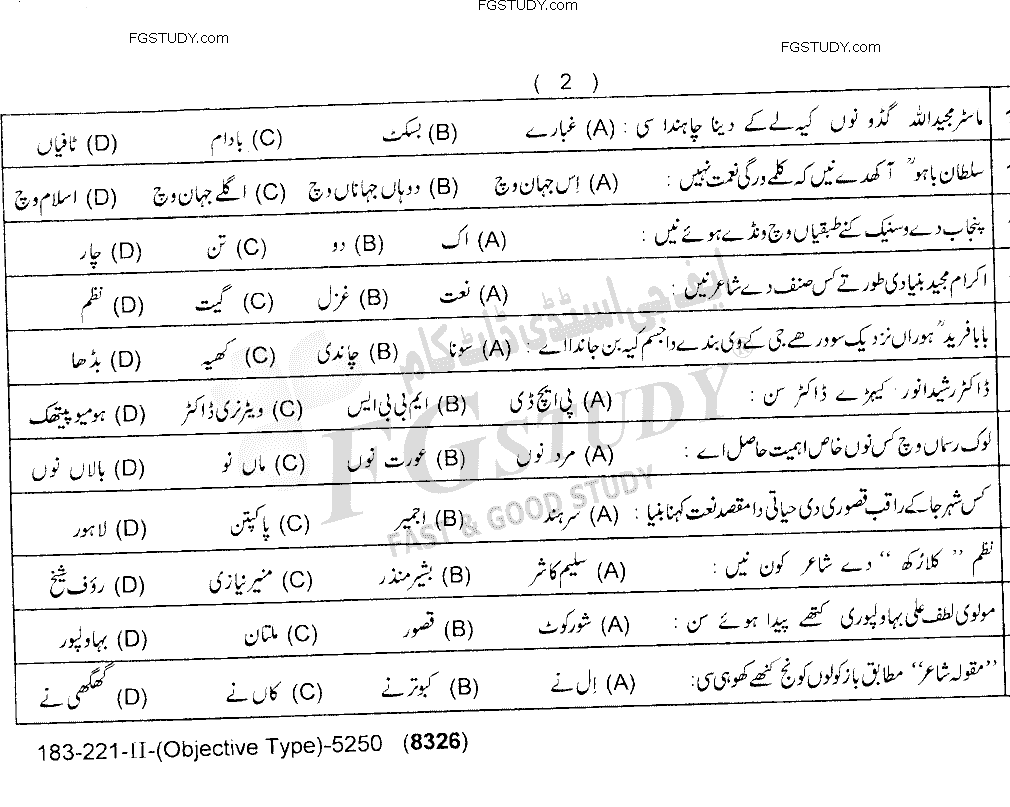 FGSTUDY.com
FGSTUDY.com
FGSTUDY.com
( 2 )
ماسٹر مجیداللہ گڈو نوں کیہ لے کے دینا چاہندا سی : (A) غبارے (B) بسکٹ (C) بادام (D) ٹافیاں
سلطان باہوؒ آکھدے نیں کہ کلمے ورگی نعمت نہیں : (A) اِس جہان وچ (B) دوہاں جہاناں وچ (C) اگلے جہان وچ (D) اسلام وچ
پنجاب دے وسنیک کنے طبقیاں وچ ونڈے ہوئے نیں : (A) اک (B) دو (C) تن (D) چار
اکرام مجید بنیادی طور تے کس صنف دے شاعر نیں : (A) نعت (B) غزل (C) گیت (D) نظم
بابا فریدؒ ہوراں نزدیک سو ورھے جی کے وی بندے دا جسم کیہ بن جاندا اے : (A) سونا (B) چاندی (C) کھیہ (D) بڈھا
ڈاکٹر رشید انور کیہڑے ڈاکٹر سن : (A) پی ایچ ڈی (B) ایم بی بی ایس (C) ویٹرنری ڈاکٹر (D) ہومیو پیتھک
لوک رسماں وچ کس نوں خاص اہمیت حاصل اے : (A) مرد نوں (B) عورت نوں (C) ماں نو (D) بالاں نوں
کس شہر جا کے راقب قصوری دی حیاتی دا مقصد نعت کہنا بنیا : (A) سرہند (B) اجمیر (C) پاکپتن (D) لاہور
نظم ”کلا رُکھ“ دے شاعر کون نیں : (A) سلیم کاشر (B) بشیر منذر (C) منیر نیازی (D) رؤف شیخ
مولوی لطف علی بہاولپوری کتھے پیدا ہوئے سن : (A) شورکوٹ (B) قصور (C) ملتان (D) بہاولپور
”مقولہ شاعر“ مطابق باز کولوں کونج کنھے کھوہی سی: (A) اِل نے (B) کبوتر نے (C) کاں نے (D) گھگھی نے
ایف جی اسٹڈی ڈاٹ کام
FGSTUDY
®
FAST & GOOD STUDY
183-221-II-(Objective Type)-5250 (8326)